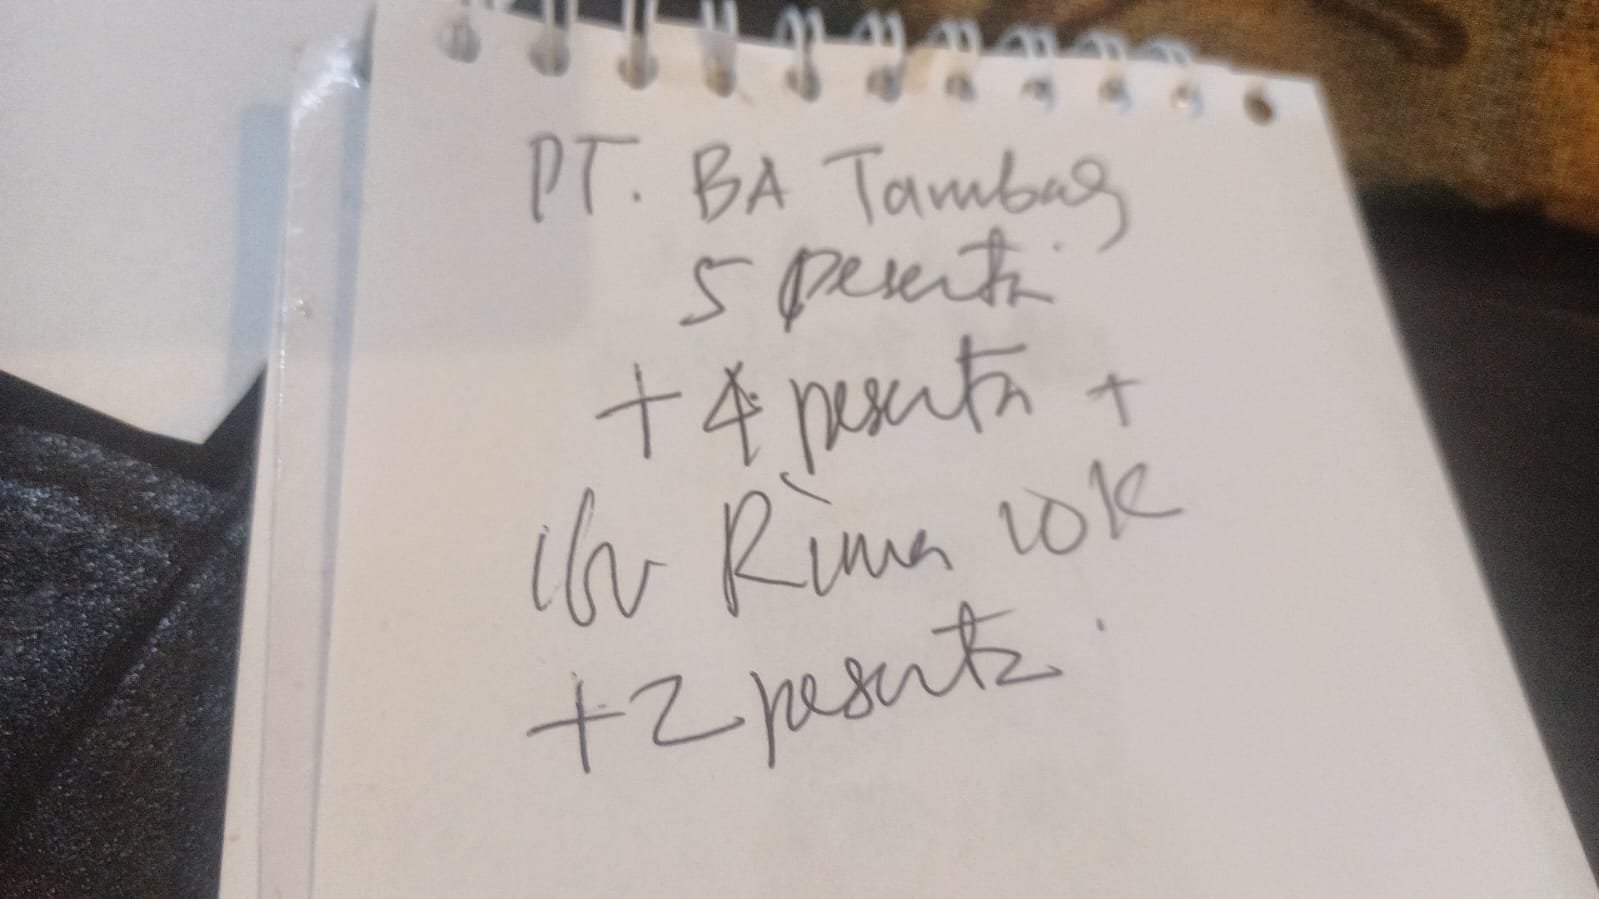 PT. BA Tambag
5 peserta
+ 4 peserta +
Ibu Rima 10K
+ 2 peserta